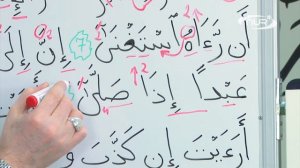 أَن رَّءَاهُ ٱسْتَغْنَىٰٓ 7 إِنَّ إِلَىٰ
عَبْدًا إِذَا صَلَّىٰٓ
أَرَءَيْتَ إِن كَذَّبَ وَ